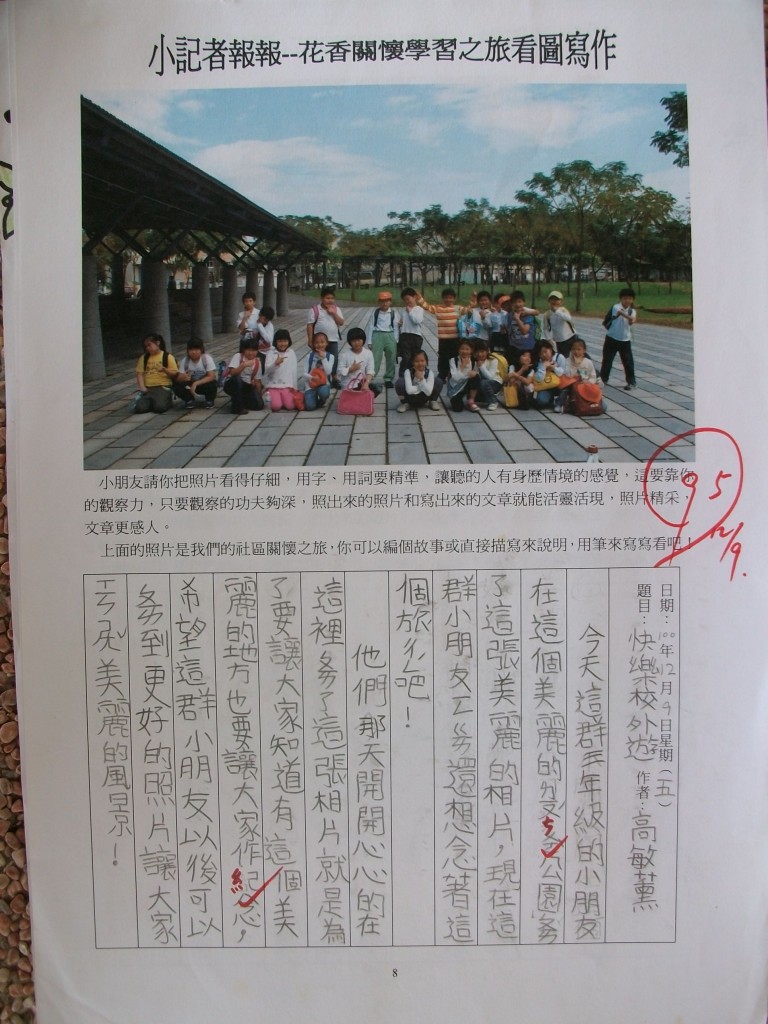 小記者報報--花香關懷學習之旅看圖寫作
小朋友請你把照片看得仔細，用字、用詞要精準，讓聽的人有身歷情境的感覺，這要靠你
的觀察力，只要觀察的功夫夠深，照出來的照片和寫出來的文章就能活靈活現，照片精采，
文章更感人。
上面的照片是我們的社區關懷之旅，你可以編個故事或直接描寫來說明，用筆來寫寫看吧！
95
12/9.
日期：100年12月9日星期（五）
題目：快樂校外遊 作者：高敏薰
今天這群三年級的小朋友
在這個美麗的公園
了這張美麗的相片，現在這
群小朋友還想念著這
個旅行吧！
他們那天開開心心的在
這裡了這張相片就是為
了要讓大家知道有這個美
麗的地方也要讓大家作紀念，
希望這群小朋友以後可以
到更好的照片讓大家
美麗的風景！
8